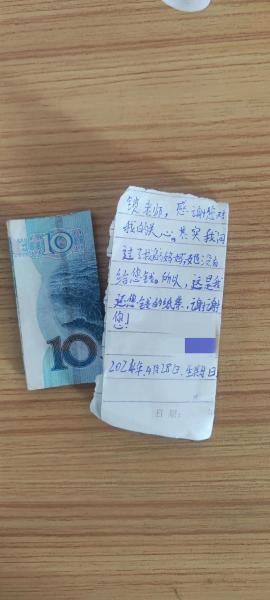 10
10
锁老师，感谢您对
我的关心。其实我问
过了我的妈妈，她没有
给您钱。所以，这是我
还您钱的纸条，谢谢
您！
2024年4月28日，星期日
日期：